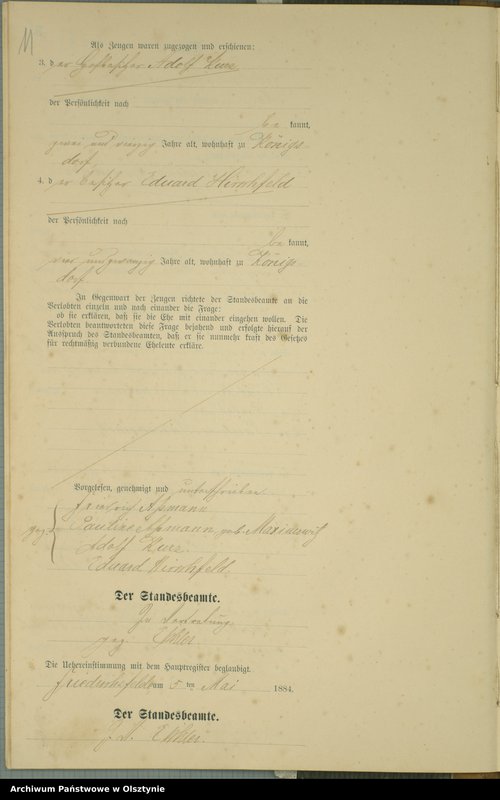 11
Als Zeugen waren zugezogen und erschienen:
3. der Hofbesitzer Adolf Kurz
der Persönlichkeit nach
be kannt,
zwei und vierzig Jahre alt, wohnhaft zu Königs-
dorf
4. der Besitzer Eduard Hirschfeld
der Persönlichkeit nach
be kannt,
vier und zwanzig Jahre alt, wohnhaft zu Königs-
dorf
In Gegenwart der Zeugen richtete der Standesbeamte an die
Verlobten einzeln und nach einander die Frage:
ob sie erklären, daß sie die Ehe mit einander eingehen wollen. Die
Verlobten beantworteten diese Frage bejahend und erfolgte hierauf der
Ausspruch des Standesbeamten, daß er sie nunmehr kraft des Gesetzes
für rechtmäßig verbundene Eheleute erkläre.
Vorgelesen, genehmigt und unterschrieben
Friedrich Aßmann
gez. Pauline Aßmann, geb.
Adolf Kurz
Eduard Hirschfeld
Der Standesbeamte.
In Vertretung
gez.
Die Uebereinstimmung mit dem Hauptregister beglaubigt.
am 5 ten Mai 1884.
Der Standesbeamte.
Archiwum Państwowe w Olsztynie